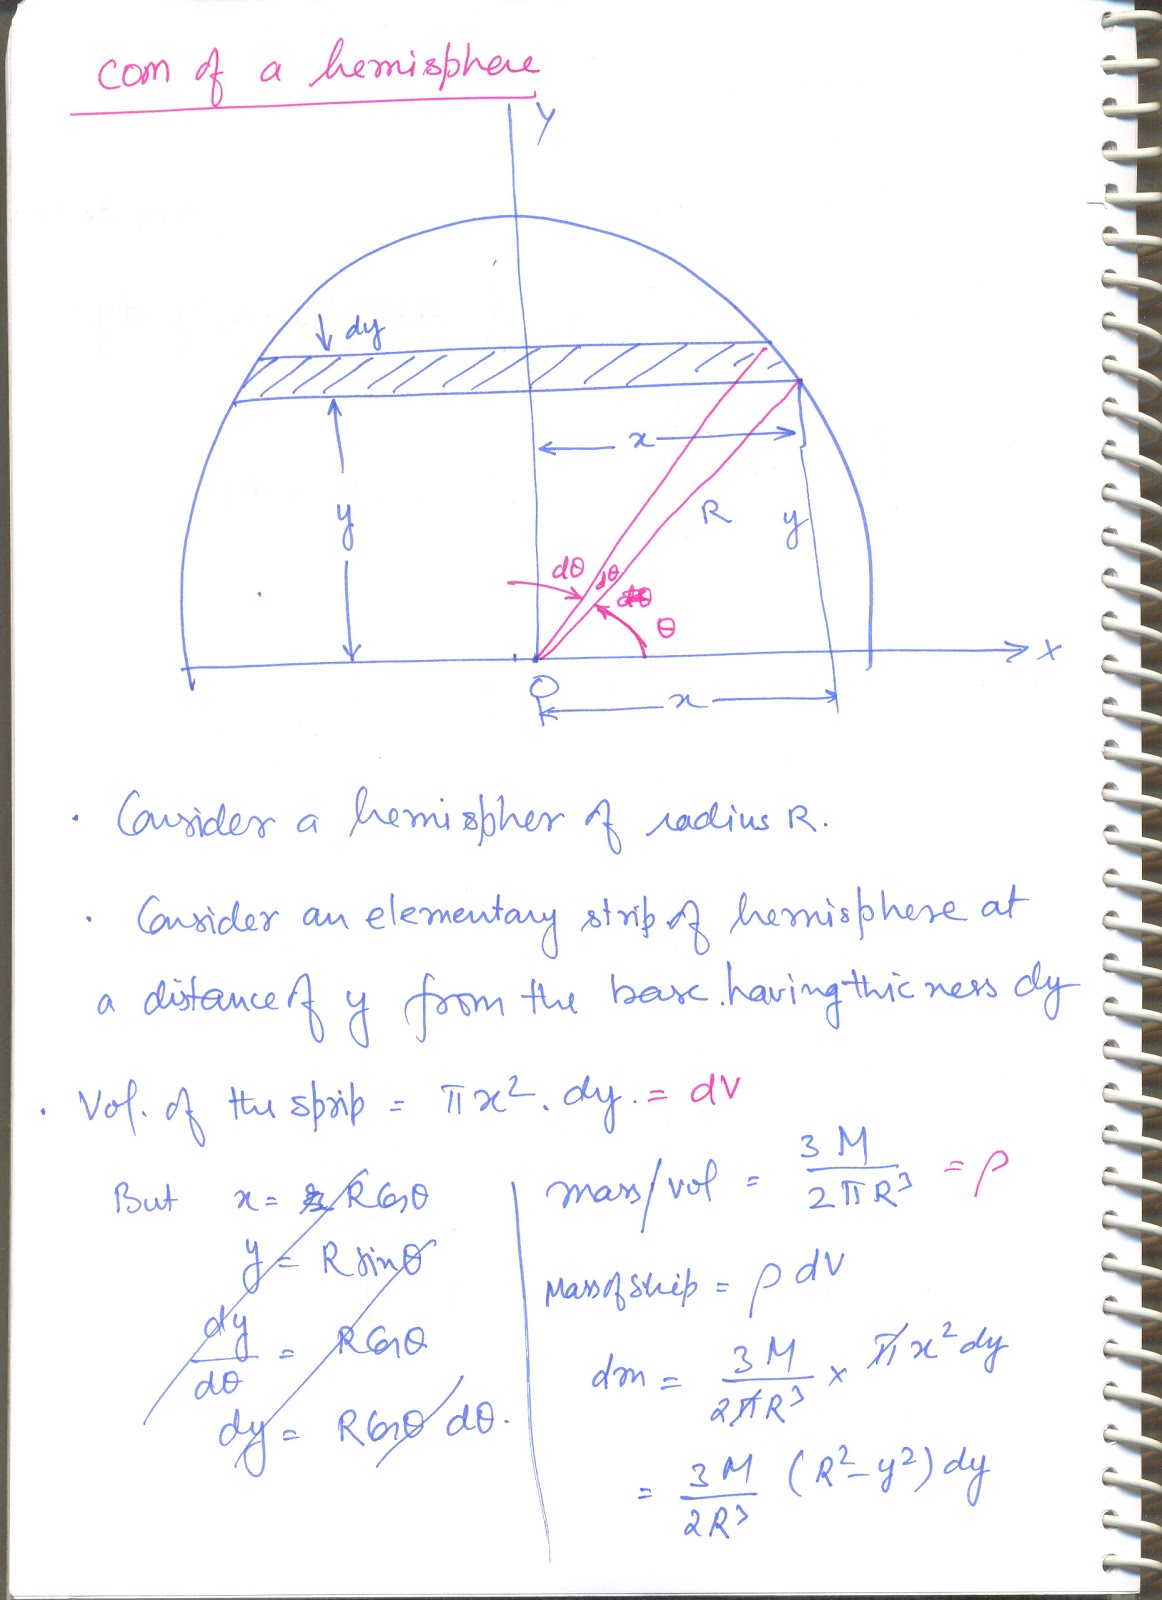 com of a hemisphere
y
dy
x
y
R
y
dθ
dθ
dθ
θ
x
O
x
· Consider a hemispher of radius R.
· Consider an elementary strip of hemisphere at
a distance of y from the base. having thicness dy
· Vol. of the sprip = πx². dy. = dV
But x = R Cosθ
y = R sinθ
dy/dθ = R Cosθ
dy = R Cosθ dθ.
mass/vol = 3M/2πR³ = ρ
Mass of strip = ρ dV
dm = 3M/2πR³ × πx² dy
= 3M/2R³ (R² - y²) dy